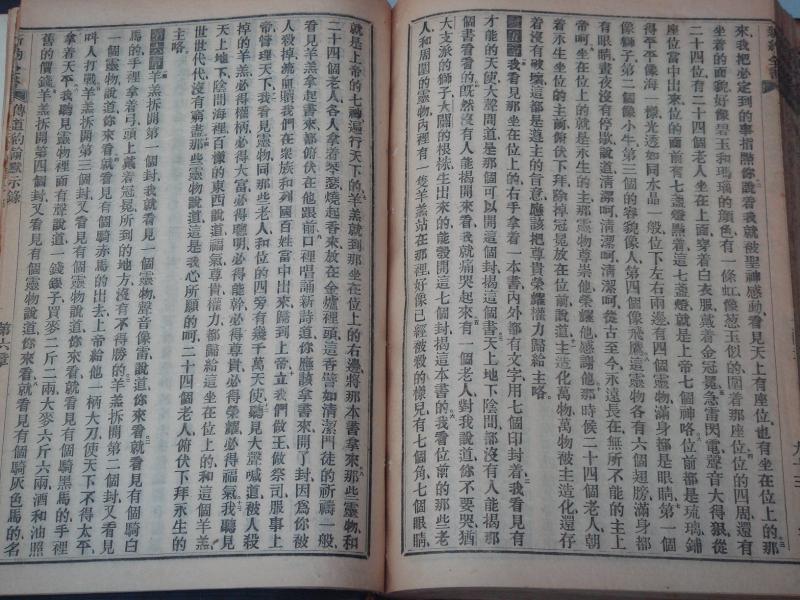 新約全書
來我把必定到的事指點你說着我就被聖神感動看見天上有座位也有坐在位上的那
坐着的面貌好像昱玉和瑪瑙的顏色有一條虹像葱玉似的圍着那座位座位的四周還有
二十四位有二十四個老人坐在上面穿着白衣服戴着金冠冕急雷閃電聲音大得狠從
座位當中出來位的面前有七盞燈點着這七盞燈就是上帝七個神咯位前都是琉璃鋪
得平平像海一樣光透如同水晶一般位下左右兩邊有四個靈物滿身都是眼睛第一個
像獅子第二個像小牛第三個的容貌像人第四個像飛鷹這靈物各有六個翅膀滿身都
有眼睛晝夜沒有停歇說道淸潔呵淸潔呵淸潔呵從古至今永遠長在無所不能的主上
帝呵坐在位上的就是永生的主那靈物尊崇他榮耀他感謝他那時候二十四個老人朝
着永生坐位的主面前俯伏下拜除掉冠冕放在位前說道主造化萬物萬物被主造化還存
着沒有破壞這都是遵主的旨意應該把尊貴榮耀權力歸給主咯
第五章我看見那坐在位上的右手拿着一本書內外都有文字用七個印封着我看見有
才能的天使大聲問道是那個可以開這個封揭這個書天上地下陰間都沒有人能揭那
個書看看的旣然沒有人能揭開來看我就痛哭起來有一個老人對我說道你不要哭猶
大支派的獅子大闢的根株生出來的能彀開這七個封揭這本書的我看位前的那些老
人和周圍的靈物內裡有一隻羊羔站在那裡好像已經被殺的樣兒有七個角七個眼睛
就是上帝的七神遍行天下的羊羔就到那坐在位上的右邊將那本書拿來那些靈物和
二十四個老人各人拿着琴瑟燒起香來放在金爐裡頭這香譬如淸潔門徒的祈禱一般
看見羊羔拿起書來都俯伏在他跟前口裡唱誦新詩道你應該拿書來開了封因爲你被
人殺掉流血贖我們在衆族和列國百姓當中出來歸到上帝立我們做王做祭司服事上
帝管理天下我看見靈物同那些老人和位的四旁有幾千萬天使聽見大聲喊道被人殺
掉的羊羔必得權柄必得大富必得聰明必得能幹必得尊貴必得榮耀必得福氣我聽見
天上地下陰間海裡百樣的東西說道福氣尊貴權力都歸給這坐在位上的和這個羊羔
世世代代沒有窮盡那些靈物說道這是我心所願的呵二十四個老人俯伏下拜永生的
主咯
第六章羊羔拆開第一個封我就看見一個靈物聲音像雷說道你來看就看見有個騎白
馬的手裡拿着弓頭上戴着冠冕所到的地方沒有不得勝的羊羔拆開第二個封又看見
一個靈物說道你來看就看見有個騎赤馬的出去上帝給他一柄大刀使天下不得太平
叫人打戰羊羔拆開第三個封又看見有個靈物說道你來看就看見有個騎黑馬的手裡
拿着天平我聽見靈物裡面有聲說道一錢銀子買麥二斤二兩大麥六斤六兩酒和油照
舊的價錢羊羔拆開第四個封又看見有個靈物說道你來看就看見有個騎灰色馬的名
新約全書 傳道約翰默示錄 第六章